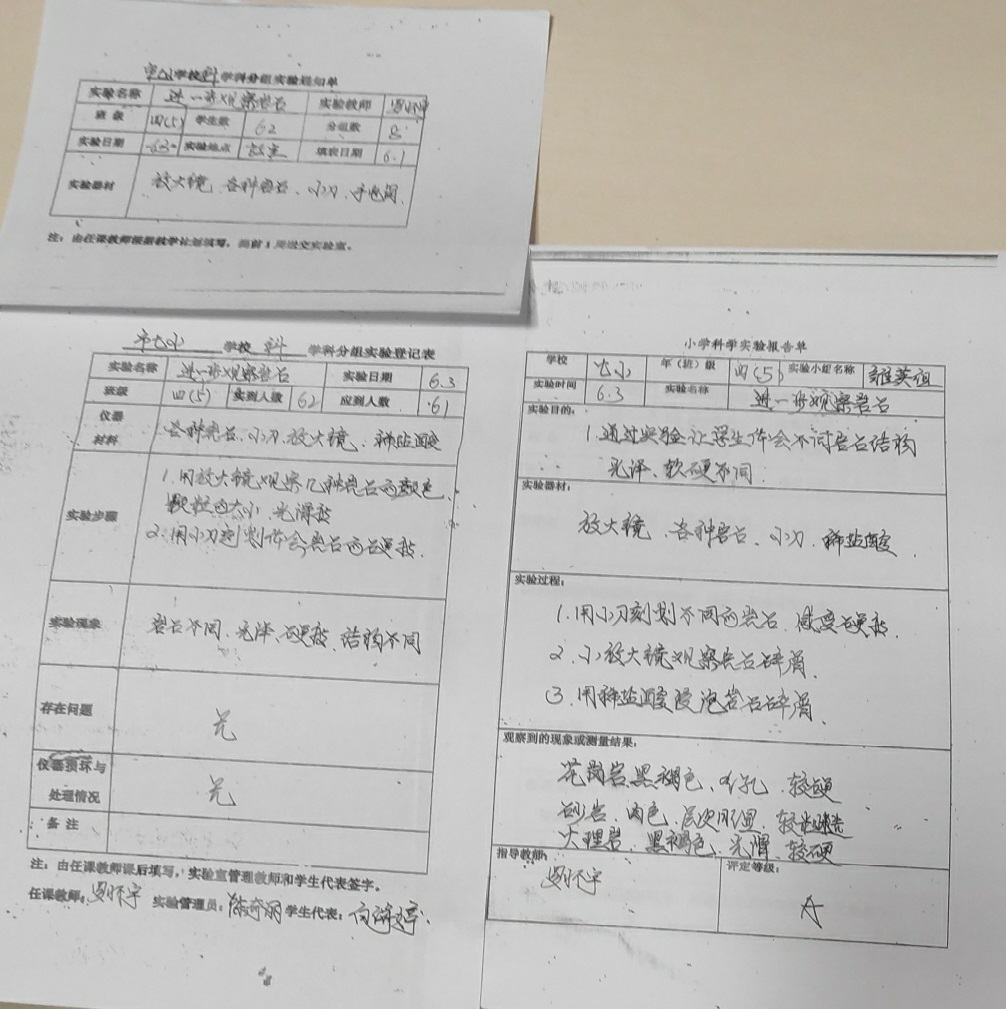 学校科学科分组实验通知单
实验名称 进一步观察岩石 实验教师
班级 四(5) 学生数 62 分组数 8
实验日期 实验地点 填表日期 6.1
实验器材 放大镜、各种岩石、小刀、手电筒
注：由任课教师根据教学计划填写，提前1周送交实验室。
市七小 学校 科 学科分组实验登记表
实验名称 进一步观察岩石 实验日期 6.3
班级 四(5) 实到人数 62 应到人数 61
仪器
材料
各种岩石、小刀、放大镜、稀盐酸
实验步骤
1.用放大镜观察几种岩石的颜色、
颗粒的大小、光滑
2.用小刀刻划体会岩石的
实验现象
岩石不同、光泽、结构不同
存在问题 无
仪器损坏与
处理情况
无
备注
注：由任课教师课后填写，实验室管理教师和学生代表签字。
任课教师： 实验管理员： 学生代表：
小学科学实验报告单
学校 七小 年（班）级 四(5) 实验小组名称 雄英组
实验时间 6.3 实验名称 进一步观察岩石
实验目的：
1.通过实验让学生体会不同岩石结构
光泽、软硬不同
实验器材：
放大镜、各种岩石、小刀、稀盐酸
实验过程：
1.用小刀刻划不同的岩石、感受
2.小放大镜观察岩石碎屑
3.用稀盐酸浸泡岩石碎屑、
观察到的现象或测量结果：
花岗岩、黑褐色、气孔、较硬
砂岩、肉色、层次
大理岩、黑褐色、光滑、较硬
指导教师：
评定等级：
A